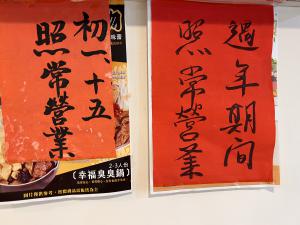 初一、十五
照常營業
2-3人份
〔幸福臭臭鍋〕
過年期間
照常營業